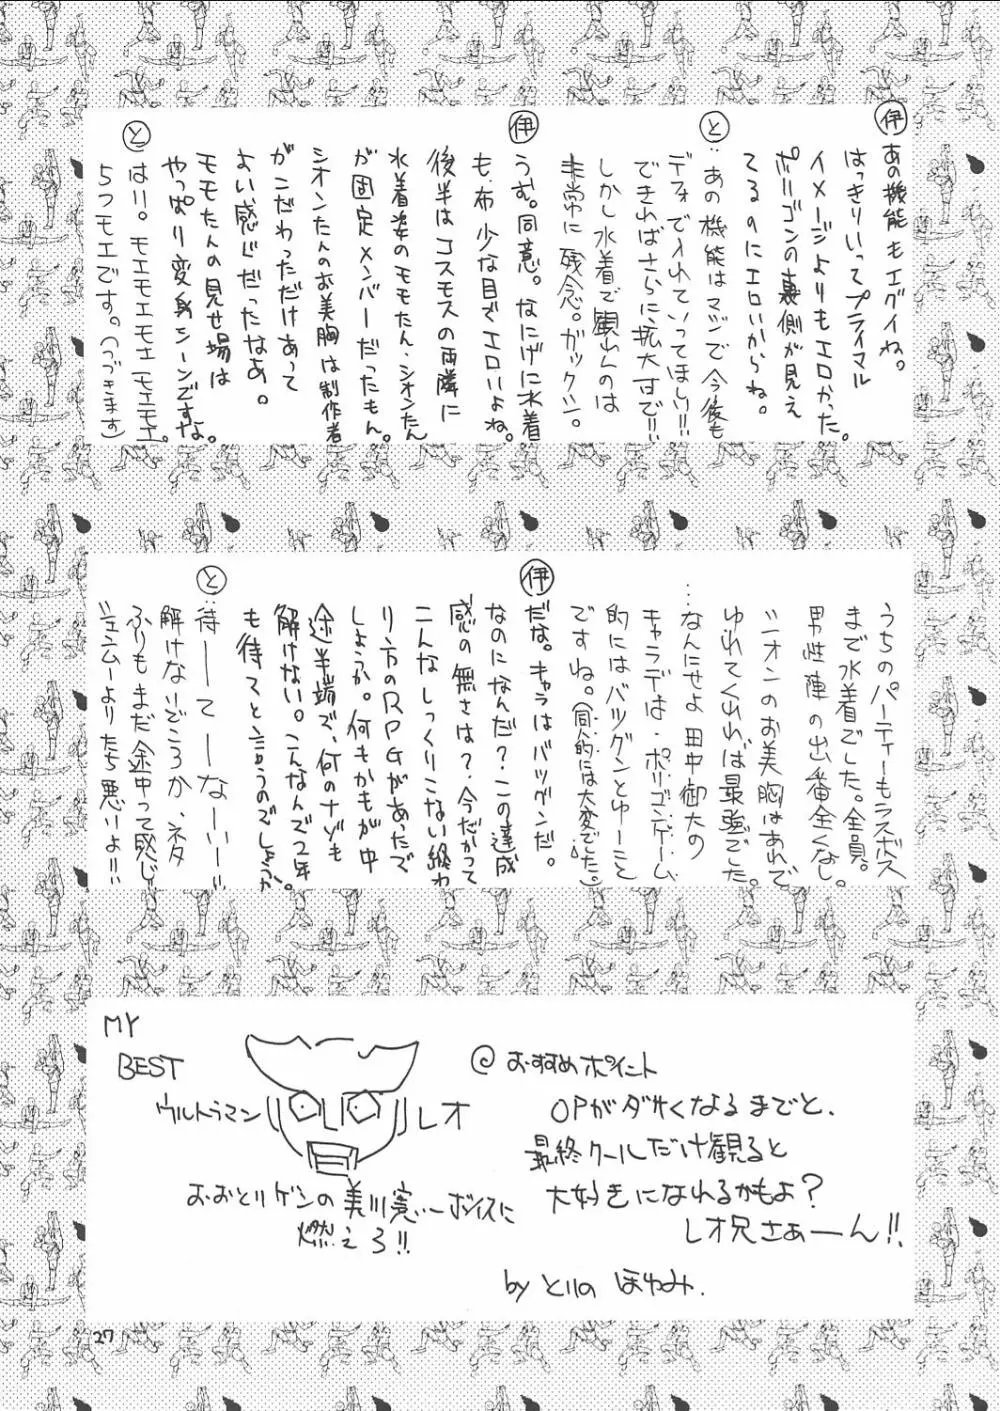 伊
あの機能もエグイね。
はっきりいってプライマル
イメージよりもエロかった。
ポリゴンの裏側が見え
てるのにエロいからね。
と
:あの機能はマジで今後も
デフォで入れていってほしい!!
できればさらに拡大すで!!!
しかし水着で観れんのは
非常に残念。ガックシ。
伊
うむ。同意。なにげに水着
も、布少な目でエロいよね。
後半はコスモスの両隣に
水着姿のモモたん、シオンたん
が固定メンバーだったもん。
シオンたんのお美胸は制作者
がこだわっただけあって
よい感じだったなあ。
モモたんの見せ場は
やっぱり変身シーンですよ。
と
はい。モエモエモエモエモエ。
5つモエです。(つづきます)
うちのパーティーもラスボス
まで水着でした。全員。
男性陣の出番全くなし。
シオンのお美胸はあれで
ゆれてくれれば最強でした。
…なんにせよ田中御大の
キャラデは、ポリゴンゲーム
的にはバツグンとゆーこと
ですね。(同人的には大変でした。)
伊
だな。キャラはバツグンだ。
なのになんだ?この達成
感の無さは?今だかつて
こんなしっくりこない終わ
り方のRPGがあったで
しょうか。何もかもが中
途半端で、何のナゾも
解けない。こんなんで2年
も待てと言うのでしょうか。
と
:待ーーてーーなーいー!!
解けないどころか、ネタ
ふりもまだ途中って感じ。
シェンムーよりたち悪いよ!!
MY
BEST
ウルトラマン レオ
おおとりゲンの美川寛いーボイスに
燃えろ!!
@おすすめポイント
OPがダサくなるまでと、
最終クールだけ観ると
大好きになれるかもよ?
レオ兄さぁーん!!
by とりの ほわみ.
27